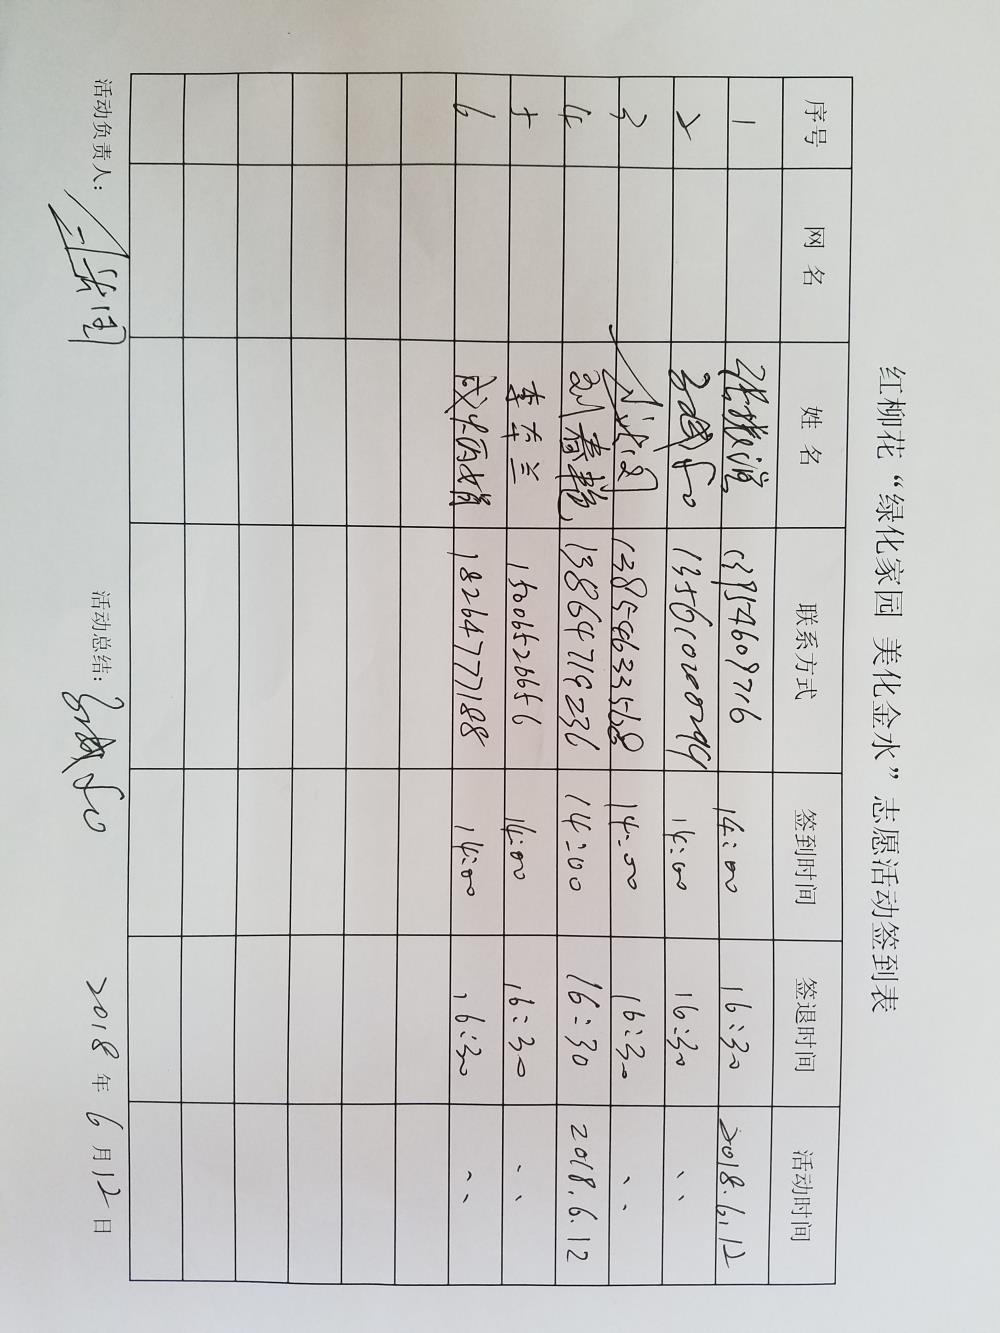 红柳花“绿化家园 美化金水”志愿活动签到表
序号 网名 姓名 联系方式 签到时间 签退时间 活动时间
1 14:00 16:30 2018.6.12
2 14:00 16:30 、、
3 13854633568 14:00 16:30 、、
4 刘春艳 13864719236 14:00 16:30 2018.6.12
5 李东兰 15006526656 14:00 16:30 、、
6 18264777188 14:00 16:30 、、
活动负责人： 活动总结： 2018年6月12日